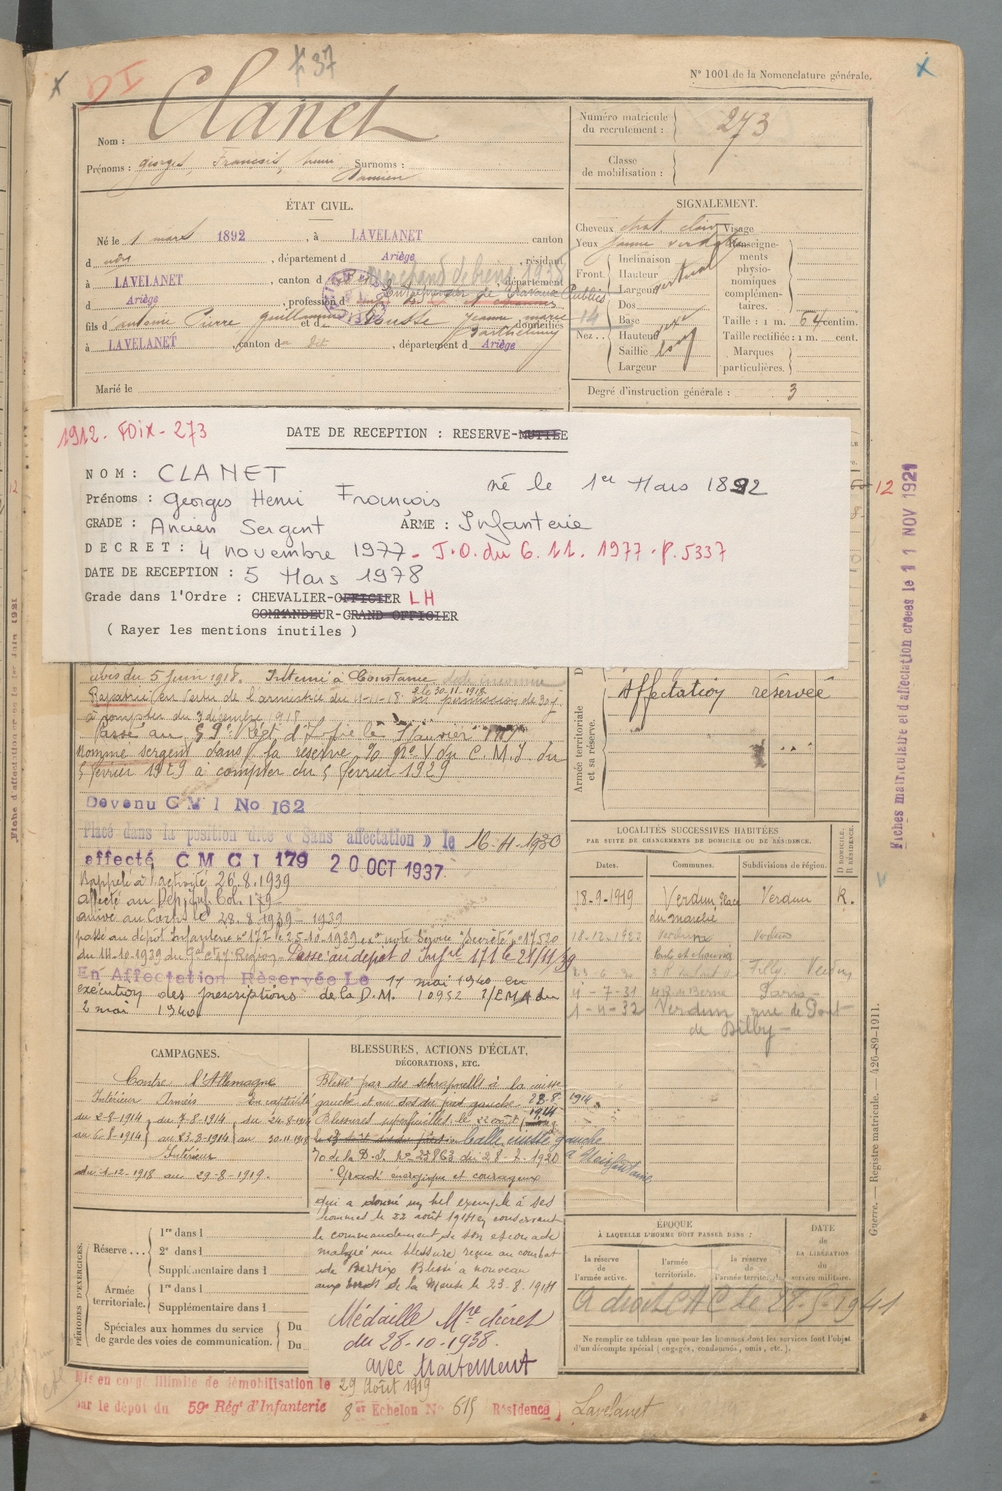 # 37
N° 1001 de la Nomenclature générale.
Clanet
Nom :
Prénoms : georges, François, henri Surnoms :
Damien
Numéro matricule du recrutement : 273
Classe de mobilisation :
ÉTAT CIVIL.
Né le 1 mars 1892, à LAVELANET canton
d udit, département d Ariège, résidant
à LAVELANET, canton d, département
d Ariège, profession d
marchand de biens 1938
Entrepreneur de Travaux Publics
fils d'antoine Pierre guillaume et d Rousse Jeanne marie
Barthelemy domiciliés
à LAVELANET, canton du dit, département d Ariège
Marié le
SIGNALEMENT.
Cheveux chat clair Visage
Yeux jaune verdâtre
Front Inclinaison
Hauteur vertical
Largeur
Nez... Dos
Base
Hauteur
Saillie long
Largeur
Renseignements physionomiques complémentaires.
Taille : 1 m. 64 centim.
Taille rectifiée : 1 m. cent.
Marques particulières.
Degré d'instruction générale : 3
1912. FOIX - 273
DATE DE RECEPTION : RESERVE-MUTILE
NOM : CLANET
Prénoms : Georges Henri François né le 1er Mars 1892
GRADE : Ancien Sergent ARME : Infanterie
DECRET : 4 novembre 1977 - J.O. du 6.11.1977 - p. 5337
DATE DE RECEPTION : 5 Mars 1978
Grade dans l'Ordre : CHEVALIER-OFFICIER LH
COMMANDEUR-GRAND OFFICIER
( Rayer les mentions inutiles )
12
Fiches matriculaire et d'affectation créées le 11 NOV 1921
avis du 5 juin 1918. Interné à Constance
Rapatrié en vertu de l'armistice du 11-11-18 le 30-11-1918 permission de 30 j.
à compter du 3 décembre 1918
Passé au 59e Régt d'Infie le 3 Janvier
Nommé sergent dans la réserve % N° V du C.M.I. du
5 février 1929 à compter du 5 février 1929
Devenu CMI No 162
Placé dans la position dite « Sans affectation » le 16-4-1930
affecté CMCI 179 20 OCT 1937
Rappelé à l'activité 26.8.1939
affecté au Dépôt Inf. Col. 179
arrivé au Corps le 28.8.1939 - 1939
passé au dépôt Infanterie n° 172 le 25-10-1939 n° 17530
du 14-10-1939 du Gal Ct Région. Passé au dépôt d'Infie 171 le 21/11/39
En Affectation Réservée Le 11 mai 1940 en
exécution des prescriptions de la D.M. 10952 1/EMA du
2 mai 1940
Armée territoriale et sa réserve.
Affectation réservée
LOCALITÉS SUCCESSIVES HABITÉES
PAR SUITE DE CHANGEMENTS DE DOMICILE OU DE RÉSIDENCE.
Dates. Communes. Subdivisions de région. D DOMICILE. R RÉSIDENCE.
18-9-1919 Verdun, Place du marché Verdun R.
18-12-1922 Verdun Verdun
4-7-31 4 R. de Berne Paris -
1-4-32 Verdun rue de Pont de Bilby -
CAMPAGNES.
Contre l'Allemagne
Intérieur Armées En captivité
du 2-8-1914 du 7-8-1914 du 24-8-1914
au 6-8-1914 au 23-8-1914 au 30-11-1918
Intérieur
du 1-12-1918 au 29-8-1919.
BLESSURES, ACTIONS D'ÉCLAT,
DÉCORATIONS, ETC.
Blessé par des schrapnells à la cuisse
gauche et au dos du pied gauche. 23-8-1914
Blessures superficielles le 22 août 1914
balle cuisse gauche
O de la D.I. No 23863 du 28-2-1920
"Gradé énergique et courageux
qui a donné un bel exemple à ses
hommes le 22 août 1914 en conservant
le commandement de son escouade
malgré une blessure reçue au combat
de Bertrix. Blessé à nouveau
aux bords de la Meuse le 23.8.1914
Médaille Mre décret
du 28-10-1938.
avec traitement
PÉRIODES D'EXERCICES.
Réserve... 1re dans l
2e dans l
Supplémentaire dans l
Armée territoriale. 1re dans l
Supplémentaire dans l
Spéciales aux hommes du service de garde des voies de communication. Du
Du
ÉPOQUE
À LAQUELLE L'HOMME DOIT PASSER DANS :
la réserve de l'armée active. l'armée territoriale. la réserve de l'armée territoriale. DATE DE LA LIBÉRATION du service militaire.
A droit C A C le 28-5-1941
Ne remplir ce tableau que pour les hommes dont les services font l'objet d'un décompte spécial (engagés, condamnés, omis, etc.).
Guerre. — Registre matricule. — 426-89-1911.
Mis en congé illimité de démobilisation le 29 Août 1919
par le dépôt du 59e Régt d'Infanterie 8e Echelon N° 615 Résidence Lavelanet